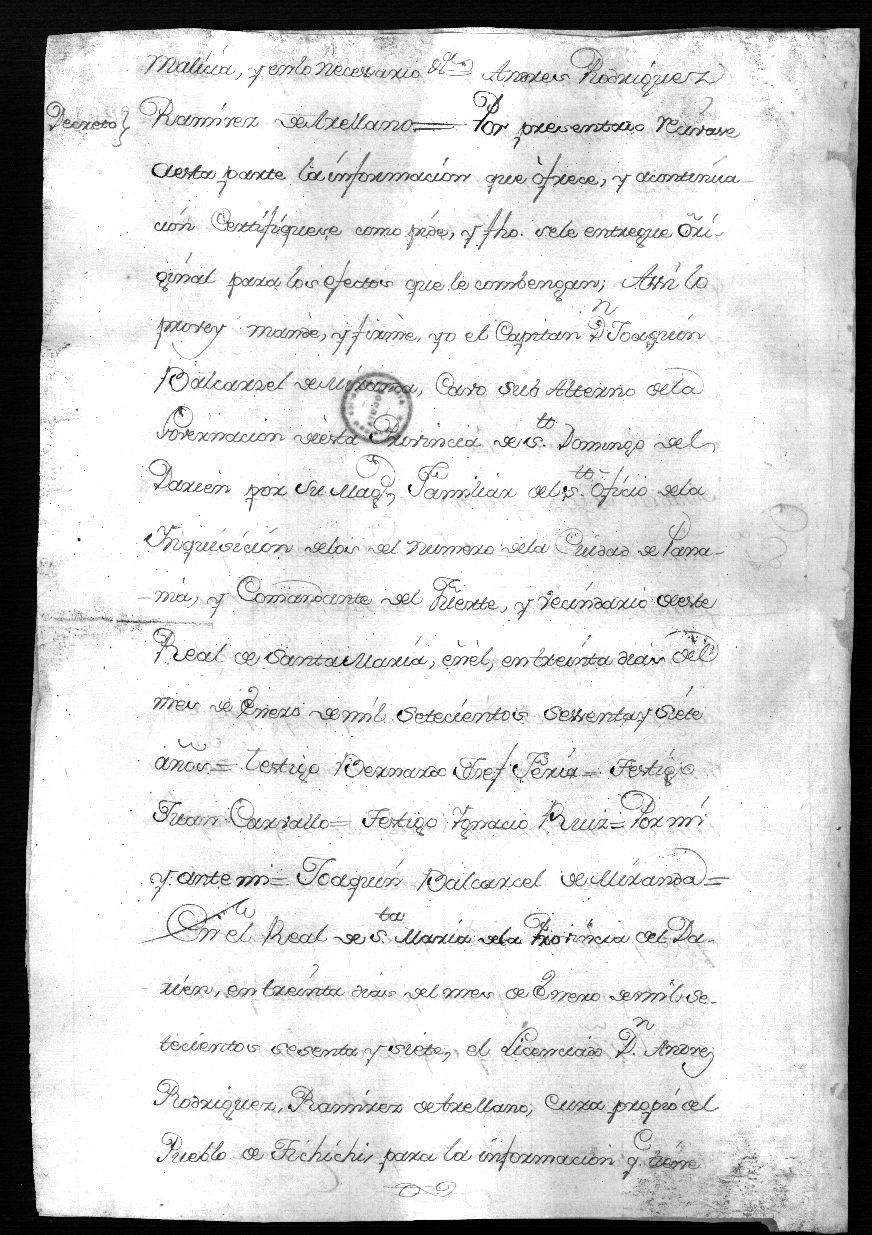 Malicia, y enlo necesario &a Andres Rodriguez
Decreto} Ramirez de Arellano = Por presentado Recivase
aesta parte la informacion que ofrece, y acontinua-
ción Certifiquese como pide, y fho. sele entregue Ori-
ginal para los efectos que le combengan; Assi lo
provey mande, y firme, yo el Capitan Dn Joaquin
Balcarsel de Miranda, Cavo Sub Alterno dela
Governacion deesta Provincia de Sto. Domingo del
Darien por Su Magd, Familiar del Sto. Oficio dela
Inquisicion delos del numero dela Ciudad de Pana-
má, y Comandante del Fuerte, y Vecindario deeste
Real de Santa Maria, en el, en treinta dias del
mes de Enero de mil setecientos sessenta y siete
años = Testigo Bernardo Feria = Testigo
Juan Carvallo = Testigo Ygnacio Ruiz = Por mi
y ante mi = Joaquin Balcarcel de Miranda =
En el Real de Sta. Maria dela Provincia del Da-
rien, en treinta dias del mes de Enero de mil se-
tecientos sesenta y siete, el Licenciado Dn. Andres
Rodriguez, Ramirez de Arellano, Cura propio del
Pueblo de Fichichi, para la informacion q. tiene